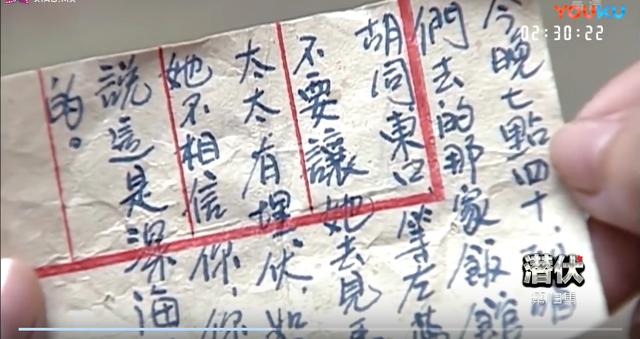 YOUKU
02:30:22
今晚七點四十,
們去的那家飯館
胡同東口等左藍
不要讓她去見
太太有埋伏,如
她不相信你,你
說這是深海
的。
潜伏